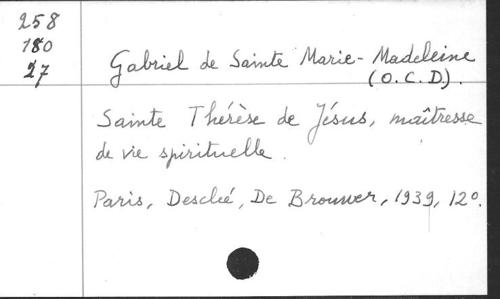 258
180
27
Gabriel de Sainte Marie-Madeleine
(O.C.D).
Sainte Thérèse de Jésus, maîtresse
de vie spirituelle.
Paris, Desclée, De Brouwer, 1939, 12°.